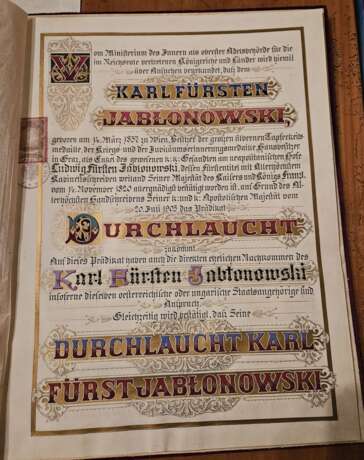 Vom Ministerium des Innern als oberster Adelsbehörde für die
im Reichsrate vertretenen Königreiche und Länder wird hiemit
über Ansuchen beurkundet, daß dem
KARL FÜRSTEN
JABŁONOWSKI,
geboren am 14. März 1857 in Wien, Besitzer der großen silbernen Tapferkeits-
medaille, der Kriegs- und der Jubiläumserinnerungsmedaille, Hausbesitzer
in Graz, als Enkel des gewesenen k: k: Gesandten am neapolitanischen Hofe
Ludwig Fürsten Jabłonowski, dessen Fürstentitel mit Allerhöchstem
Kabinettschreiben weiland Seiner Majestät des Kaisers und Königs Franz I.
vom 14. November 1820 allergnädigst bestätigt worden ist, auf Grund des Al-
lerhöchsten Handschreibens Seiner k: und k: Apostolischen Majestät vom
20. Juli 1905 das Prädikat
DURCHLAUCHT
zukommt.
Auf dieses Prädikat haben auch die direkten ehelichen Nachkommen des
Karl Fürsten Jabłonowski
insoferne dieselben oesterreichische oder ungarische Staatsangehörige sind
Anspruch.
Gleichzeitig wird bestätigt, daß Seine
DURCHLAUCHT KARL
FÜRST JABŁONOWSKI